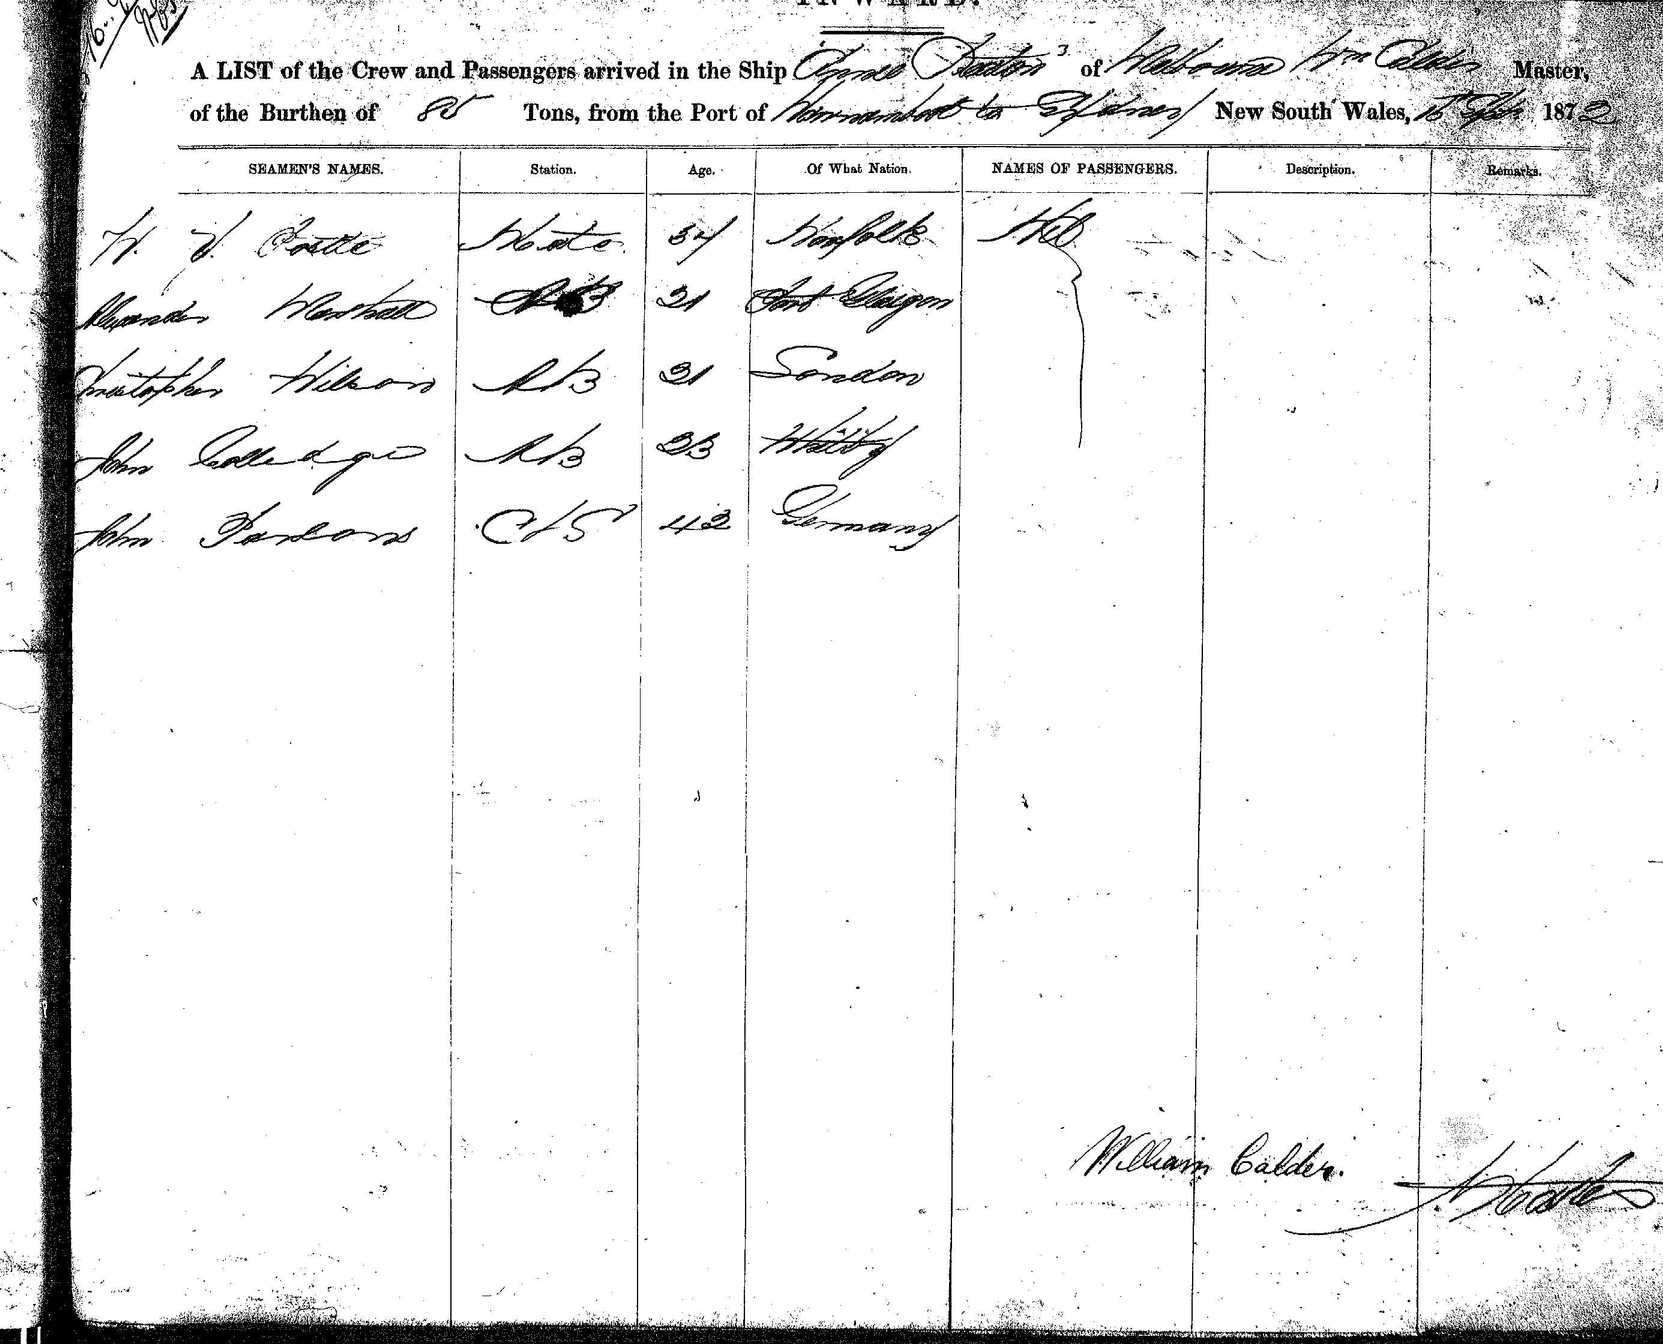 INWARD.
A LIST of the Crew and Passengers arrived in the Ship of Melbourne Wm Calder Master,
of the Burthen of 85 Tons, from the Port of Warrnambool to Sydney New South Wales, 15 Sept 1872
SEAMEN'S NAMES. Station. Age. Of What Nation. NAMES OF PASSENGERS. Description. Remarks.
W. Mate 34 Norfolk Nil
Alexander Marshall AB 21 Port Glasgow
Christopher Wilson AB 21 London
John Colledge AB 23 Whitby
John Parsons C&S 42 Germany
William Calder.
Master